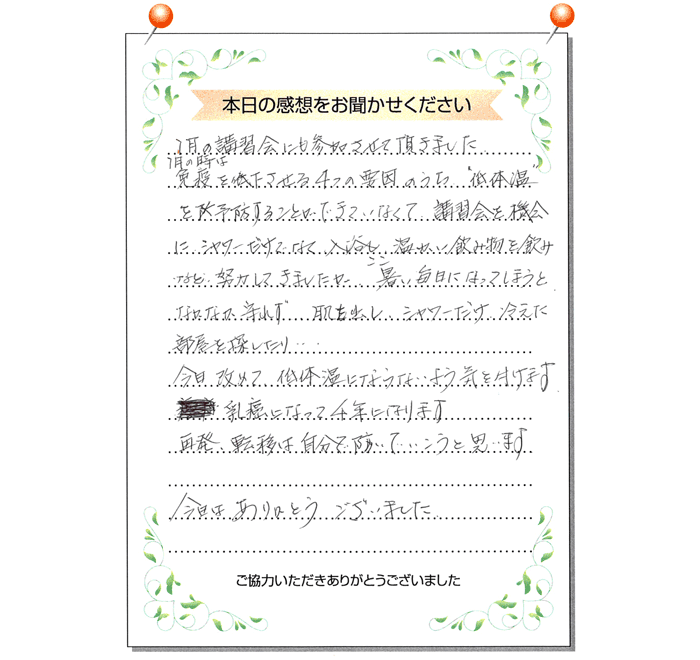 本日の感想をお聞かせください
1月の講習会にも参加させて頂きました
1月の時は
免疫を低下させる4つの要因のうち "低体温"
を予防することができていなくて、講習会を機会
に シャワーだけでなく 入浴し 温かい飲み物を飲み
など 努力してきましたが、ここ 暑い毎日になってしまうと
なかなか 守れず 肌を出し シャワーだけ 冷えた
部屋を探したり…
今日 改めて 低体温にならないよう気を付けます
乳癌になって 4年になります
再発、転移は 自分で 防いでいこうと思います
今日は ありがとう ございました
ご協力いただきありがとうございました